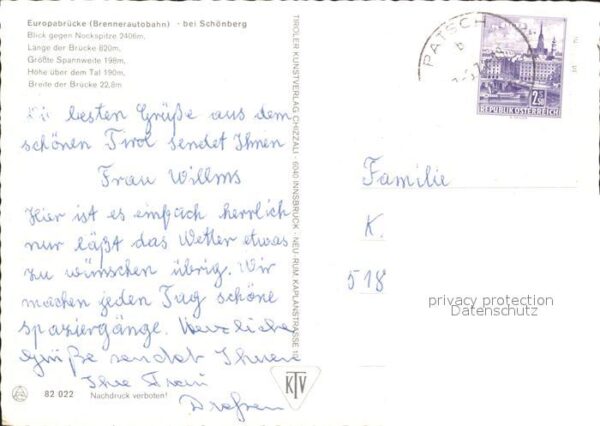 Europabrücke (Brennerautobahn) - bei Schönberg
Blick gegen Nockspitze 2406m.
Länge der Brücke 820m,
Größte Spannweite 198m,
Höhe über dem Tal 190m,
Breite der Brücke 22,8m
besten Grüße aus dem
schönen Tirol sendet Ihnen
Frau Willms
Hier ist es einfach herrlich
nur läßt das Wetter etwas
zu wünschen übrig. Wir
machen jeden Tag schöne
spaziergänge. Herzliche
Grüße sendet Ihnen
Ihre Frau
82 022
Nachdruck verboten!
TIROLER KUNSTVERLAG CHIZZALI · 6040 INNSBRUCK · NEU-RUM KAPLANSTRASSE
KTV
PATSCH
2S
REPUBLIK ÖSTERREICH
Familie
K.
518
privacy protection
Datenschutz